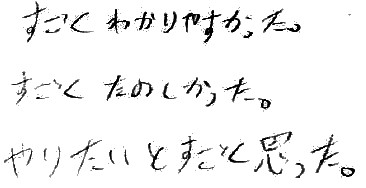 すごくわかりやすかった。
すごくたのしかった。
やりたいとすごく思った。